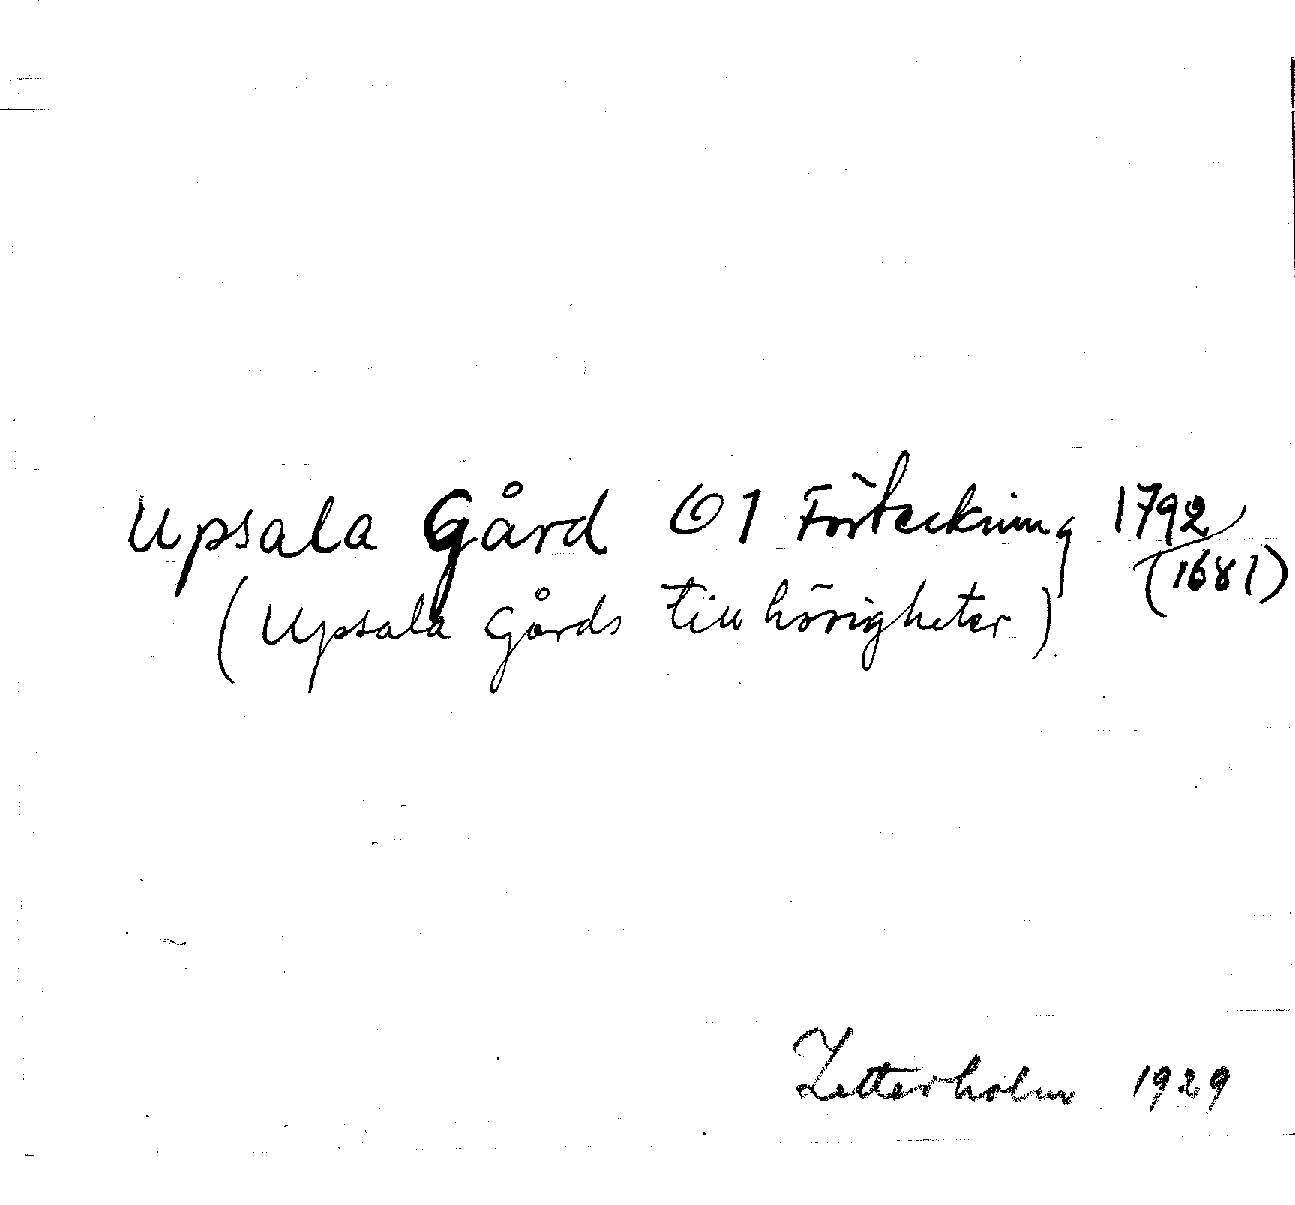 Upsala Gård 61 Förteckning 1792
(1681)
(Upsala Gårds tillhörigheter)
Zetterholm 1929